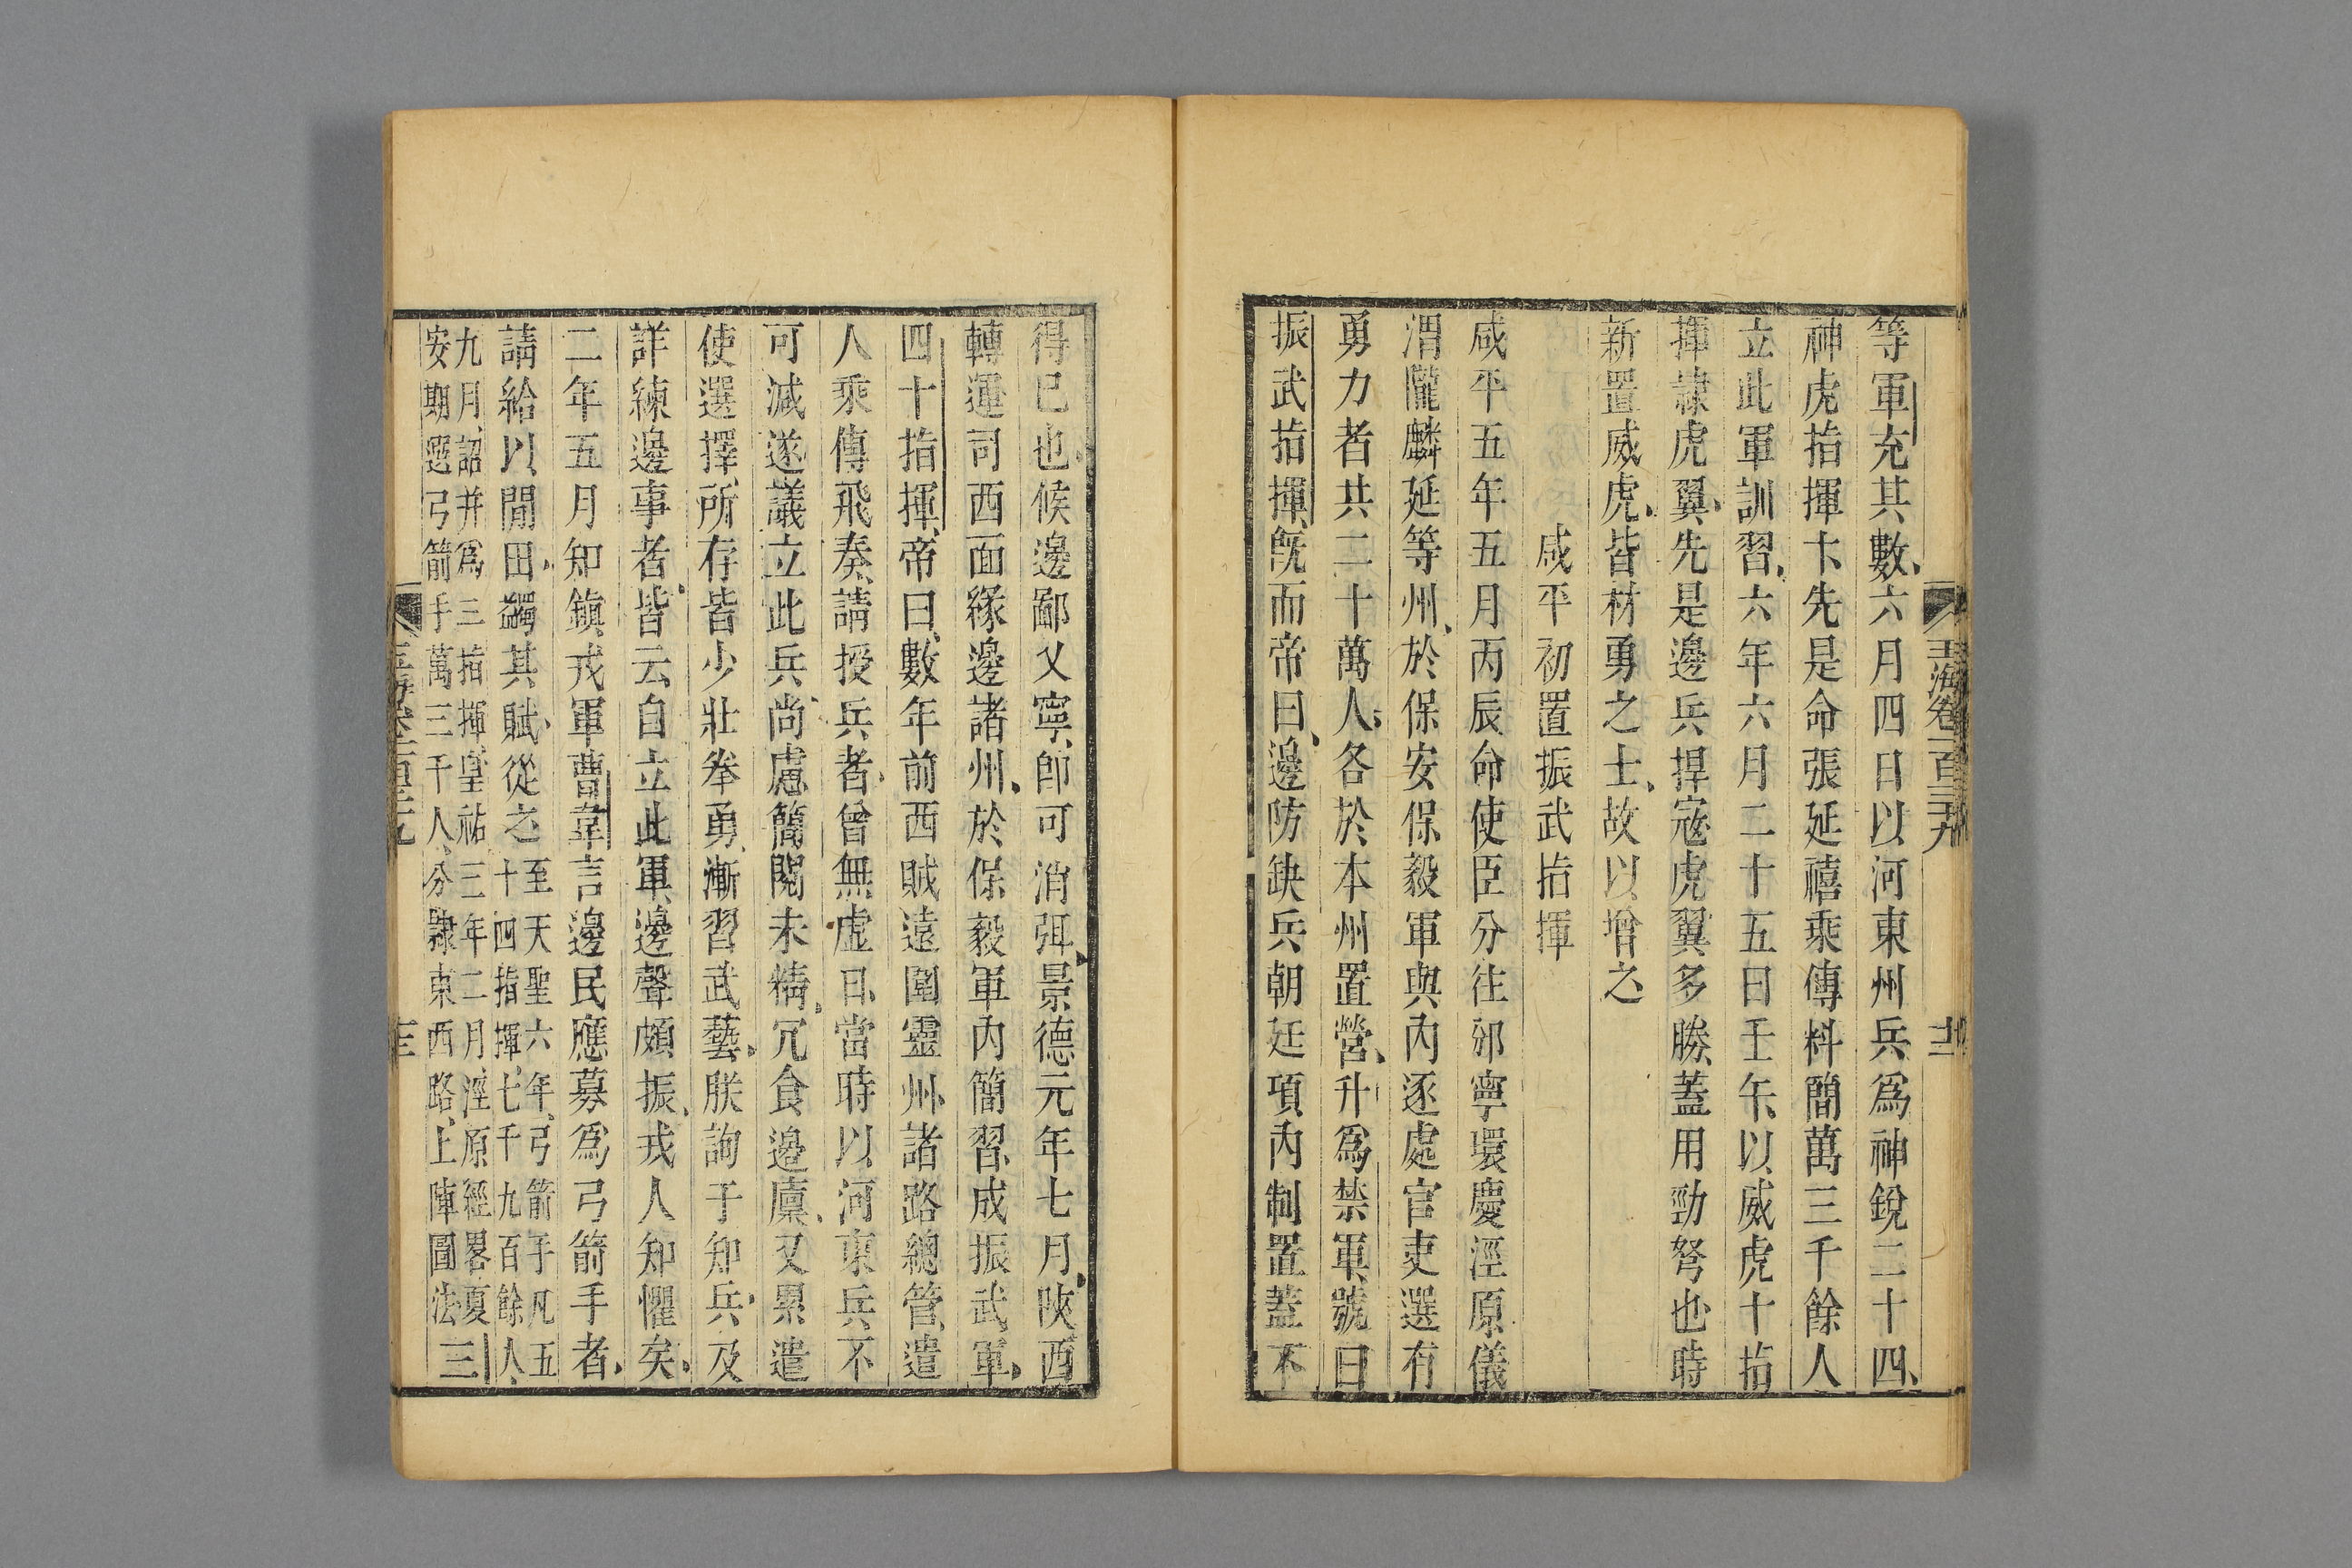 玉海卷一百三十九
等軍充其數六月四日以河東州兵爲神銳二十四
神虎指揮十先是命張延禧乘傳料簡萬三千餘人
立此軍訓習六年六月二十五日壬午以威虎十指
揮隸虎翼先是邊兵捍寇虎翼多勝蓋用勁弩也時
新置威虎皆材勇之士故以增之
咸平初置振武指揮
咸平五年五月丙辰命使臣分往邠寧環慶涇原儀
渭隴麟延等州於保安保毅軍與內逐處官吏選有
勇力者共二十萬人各於本州置營升爲禁軍號曰
振武指揮旣而帝曰邊防缺兵朝廷項內制置蓋不
得已也候邊鄙乂寧卽可消弭景德元年七月陝西
轉運司西面緣邊諸州於保毅軍內簡習成振武軍
四十指揮帝曰數年前西賊遠圍靈州諸路總管遣
人乘傳飛奏請授兵者曾無虛日當時以河東兵不
可減遂議立此兵尚慮簡閱未精冗食邊廩又累遣
使選擇所存皆少壯拳勇漸習武藝朕詢于知兵及
詳練邊事者皆云自立此軍邊聲頗振戎人知懼矣
二年五月知鎭戎軍曹韋言邊民應募爲弓箭手者
請給以閒田蠲其賦從之
至天聖六年弓箭手凡五
十四指揮七千九百餘人
九月詔并爲三指揮皇祐三年二月涇原經畧夏
安期選弓箭手萬三千人分隸東西路上陣圖法
三